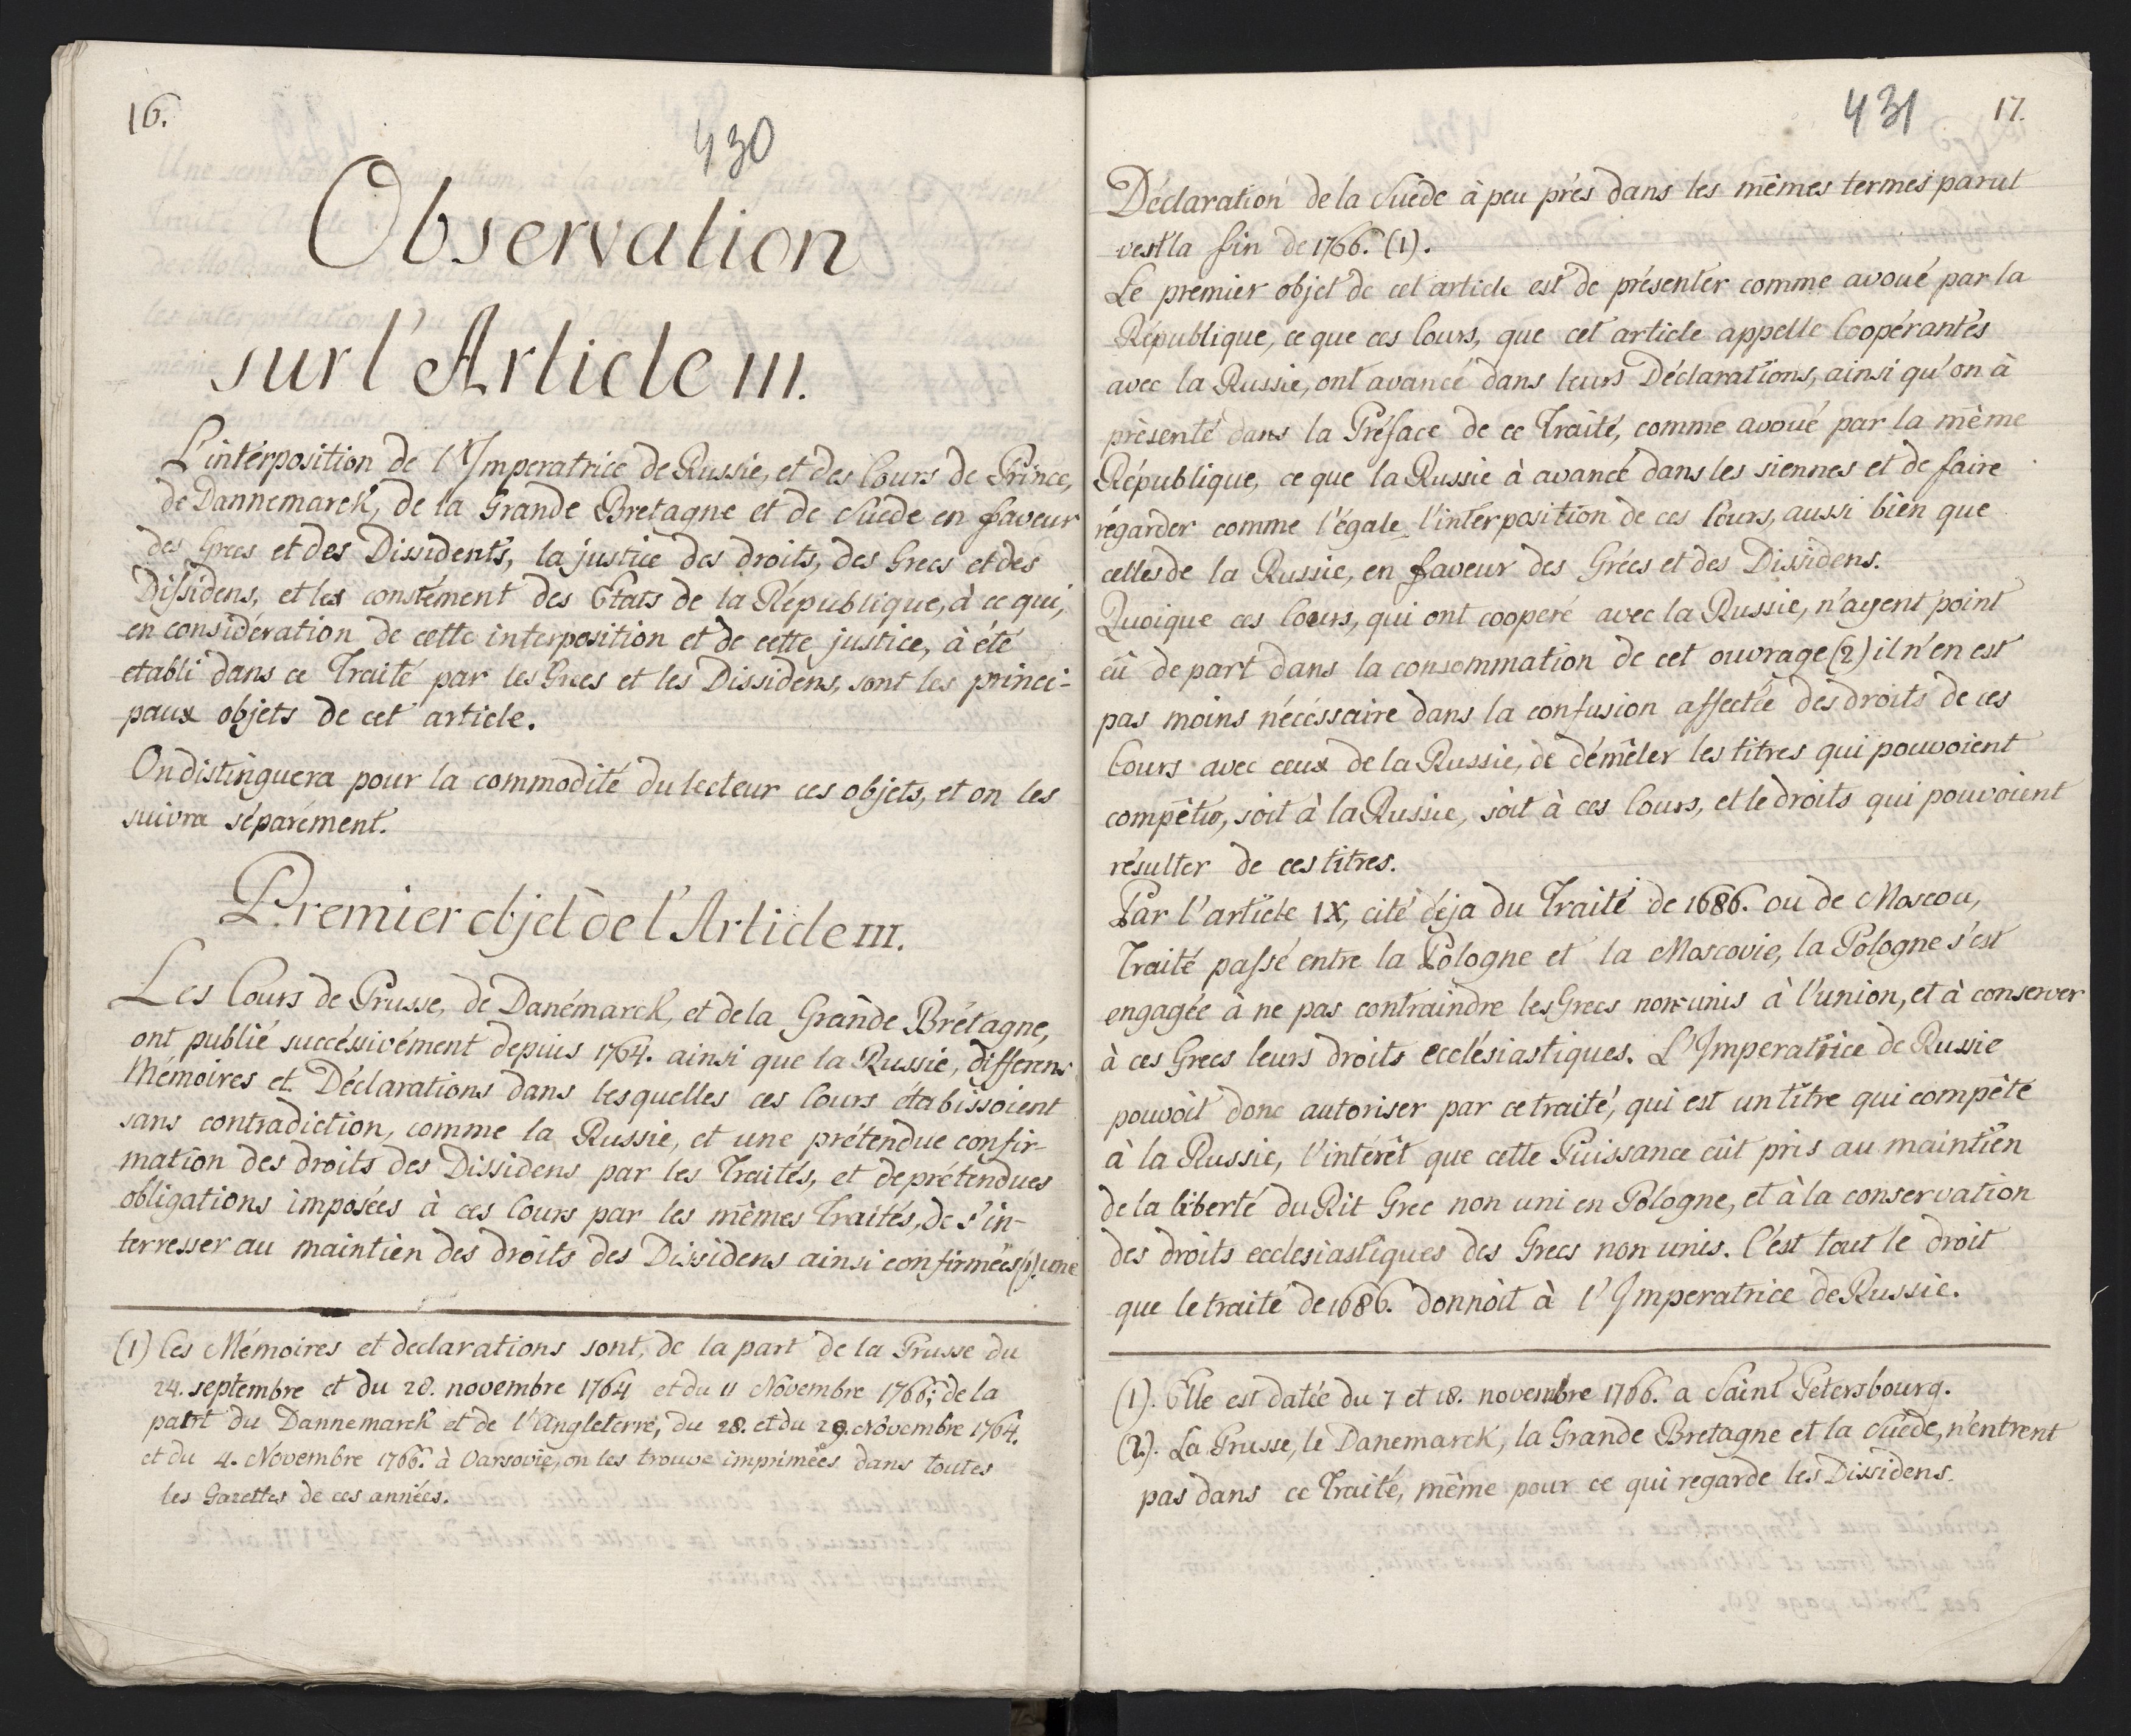 16.
430
Observation
sur l'Article III.
L'intérposition de l'Imperatrice de Russie, et des Cours de Prince,
de Dannemarck, de la Grande Bretagne et de Suéde en faveur
des Grecs et des Dissidents, la justice des droits, des Grecs et des
Dissidens, et les constément des Etats de la République, à ce qui,
en considération de cette interposition et de cette justice, à été
etabli dans ce Traité par les Grecs et les Dissidens, sont les princi-
paux objets de cet article.
On distinguera pour la commodité du lecteur ces objets, et on les
suivra séparément.
Premier objet de l'Article III.
Les Cours de Prusse, de Danémarck, et de la Grande Brétagne,
ont publié succéssivément depuis 1764. ainsi que la Russie, differens
Mémoires et Déclarations dans lesquelles ces Cours étabissoient
sans contradiction, comme la Russie, et une prétendue confir-
mation des droits des Dissidens par les Traités, et de prétendues
obligations imposées à ces Cours par les mêmes Traités, de s'in-
terresser au maintien des droits des Dissidens ainsi confirmées (1) une
(1) Ces Mémoires et declarations sont, de la part de la Prusse du
24. septembre et du 28. novembre 1764 et du 11 Novembre 1766; de la
part du Dannemarck et de l'Angleterre, du 28. et du 29. Novembre 1764.
et du 4. Novembre 1766. à Varsovie, on les trouve imprimées dans toutes
les Gazettes de ces années.
431
17.
Déclaration de la Suéde à peu prés dans les mêmes termes parut
vers la fin de 1766. (1).
Le premier objet de cet article est de présenter comme avoué par la
République, ce que ces Cours, que cet article appelle Coopérantes
avec la Russie, ont avancé dans leurs Déclarations, ainsi qu'on à
présenté dans la Préface de ce Traité, comme avoué par la même
République, ce que la Russie à avancé dans les siennes et de faire
régarder comme l'égale l'intérposition de ces Cours, aussi bien que
celles de la Russie, en faveur des Grécs et des Dissidens.
Quoique ces Cours, qui ont cooperé avec la Russie, n'ayent point
eû de part dans la consommation de cet ouvrage (2) il n'en est
pas moins nécéssaire dans la confusion affectée des droits de ces
Cours avec ceux de la Russie, de démêler les titres qui pouvoient
compêter, soit à la Russie, soit à ces Cours, et le droits qui pouvoient
résulter de ces titres.
Par l'article IX, cité déja du Traité de 1686. ou de Moscou,
Traité passé entre la Pologne et la Moscovie, la Pologne s'est
engagée à ne pas contraindre les Grecs non-unis à l'union, et à conserver
à ces Grecs leurs droits ecclésiastiques. L'Imperatrice de Russie
pouvoit donc autoriser par ce traité, qui est un titre qui compête
à la Russie, l'intérêt que cette Puissance eût pris au maintien
de la liberté du Rit Grec non uni en Pologne, et à la conservation
des droits ecclesiastiques des Grecs non unis. C'est tout le droit
que le traité de 1686. donnoit à l'Imperatrice de Russie.
(1). Elle est datée du 7 et 18. novembre 1766. a Saint Petersbourg.
(2). La Prusse, le Danemarck, la Grande Bretagne et la Suéde, n'entrent
pas dans ce Traité, même pour ce qui regarde les Dissidens.